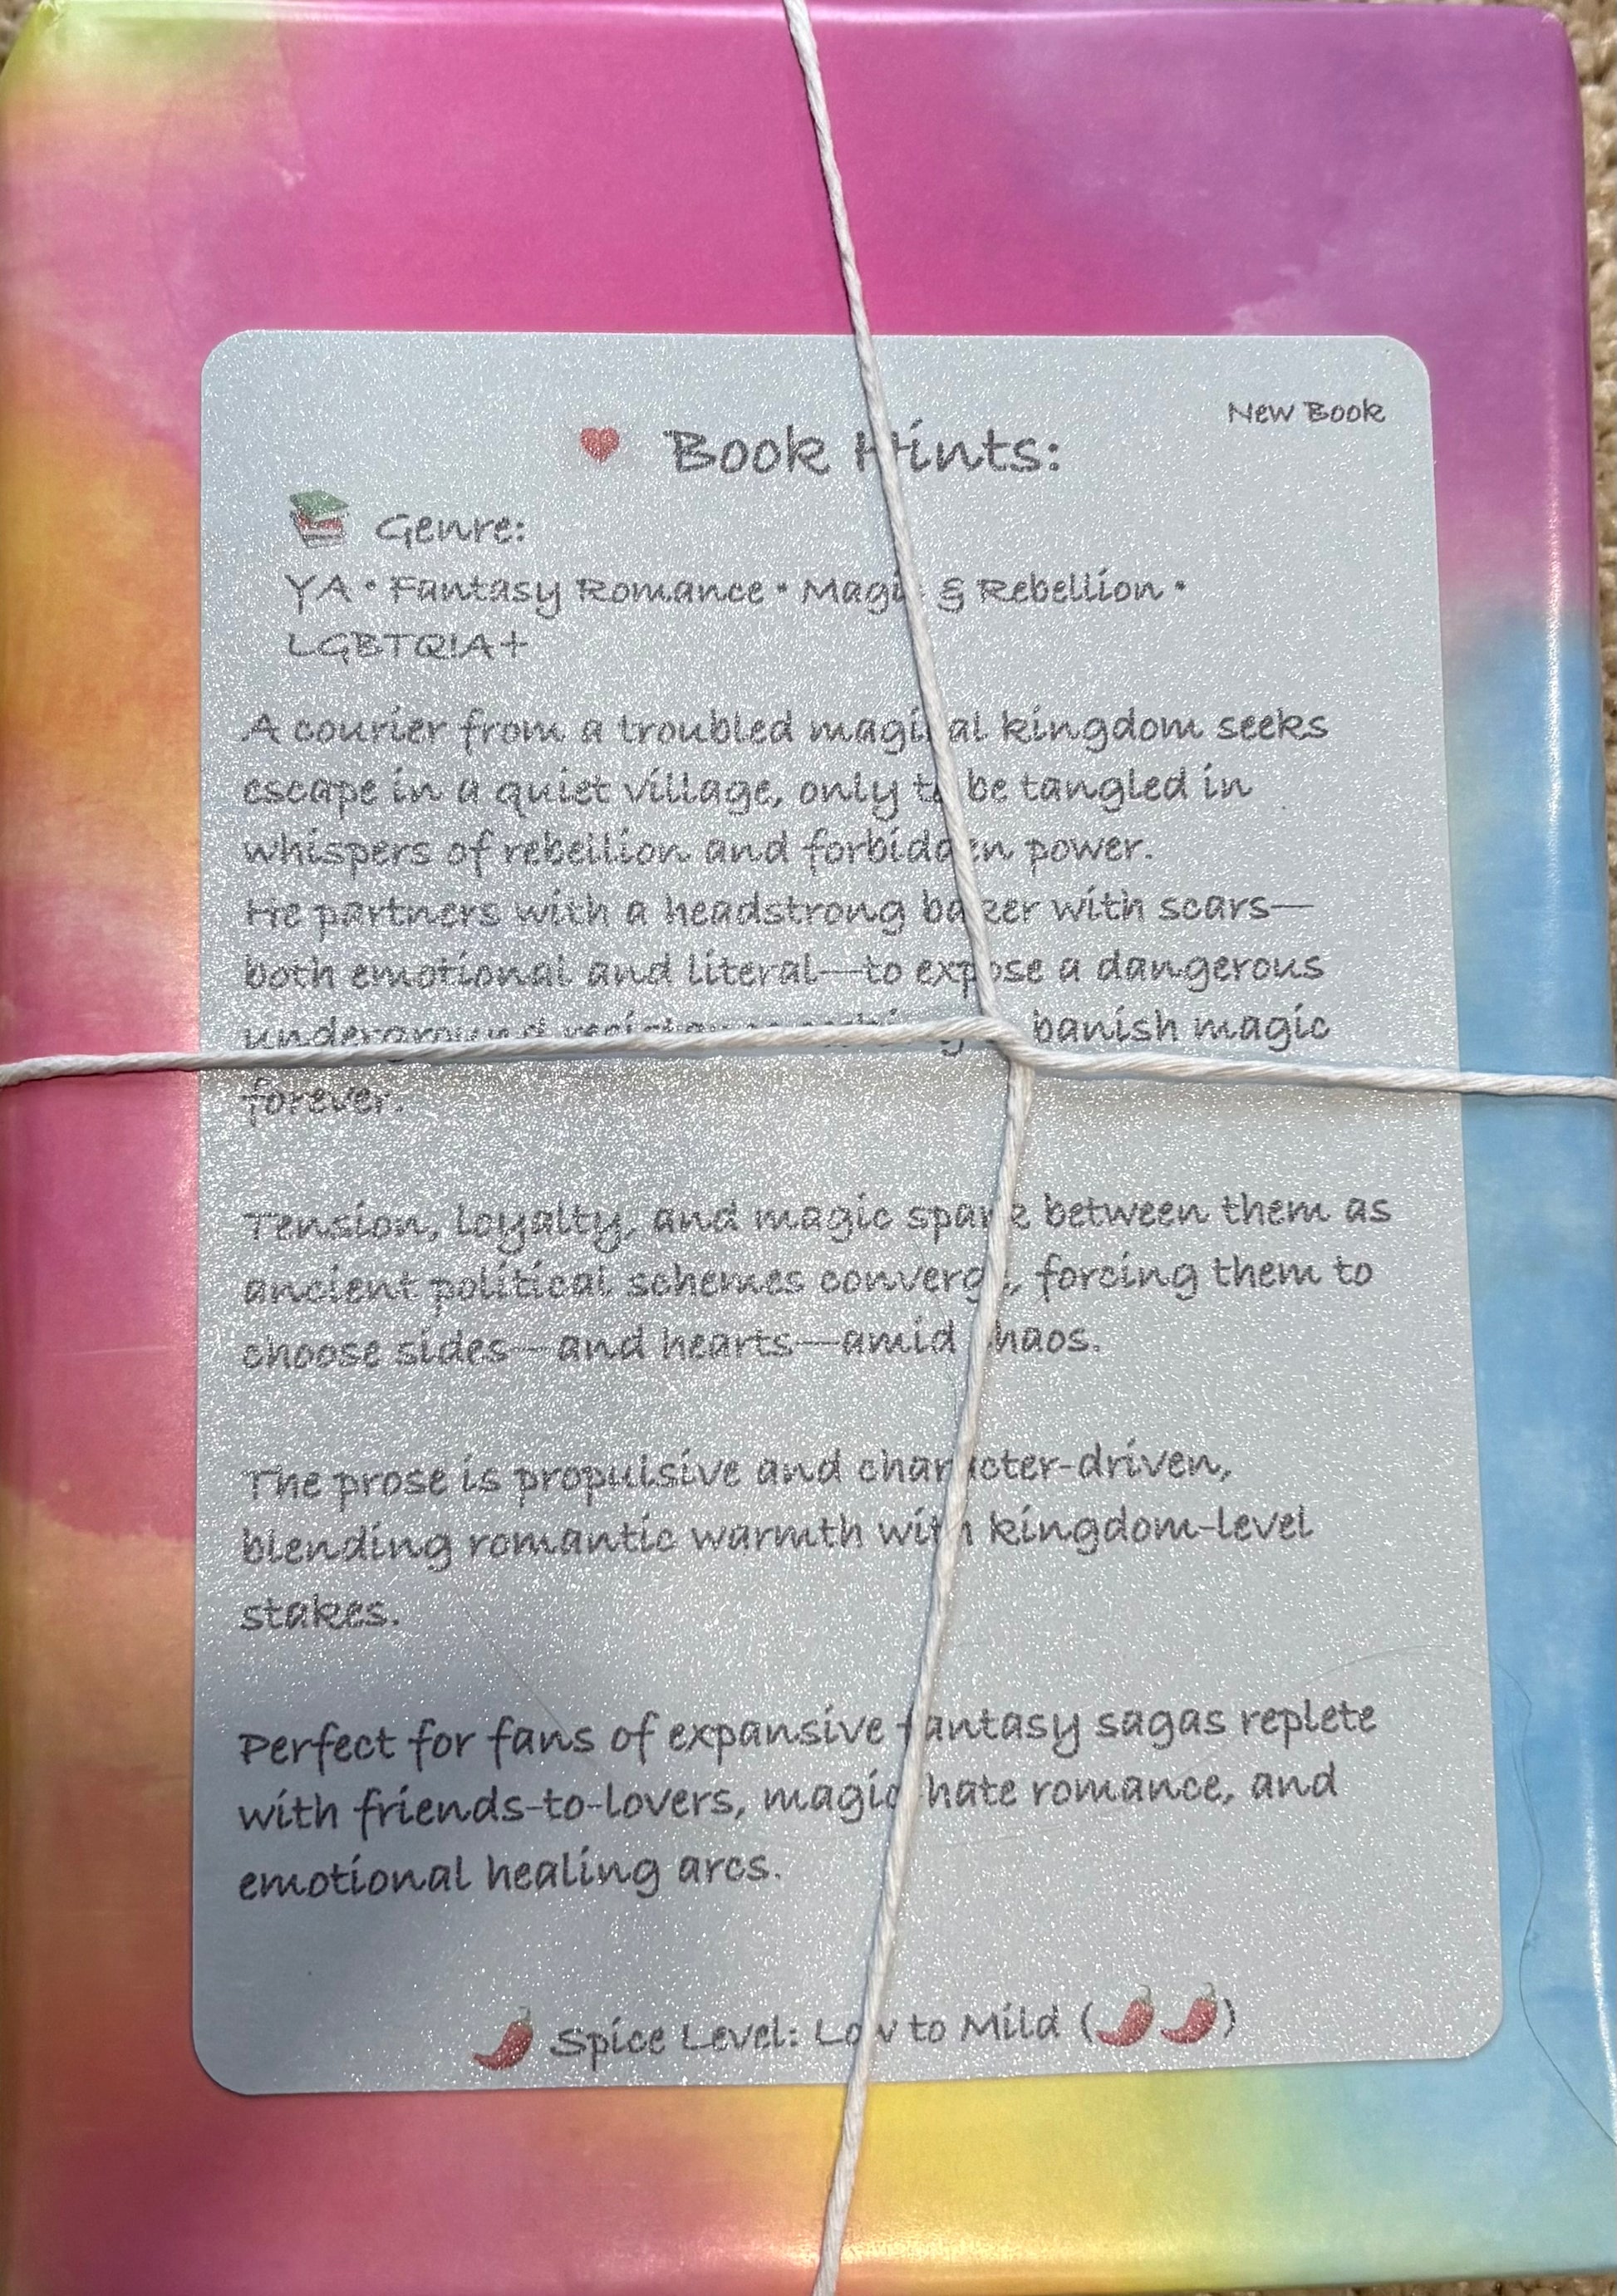 New Book
Book Hints:
Genre:
YA • Fantasy Romance • Magic & Rebellion •
LGBTQIA+
A courier from a troubled magical kingdom seeks
escape in a quiet village, only to be tangled in
whispers of rebellion and forbidden power.
He partners with a headstrong baker with scars—
both emotional and literal—to expose a dangerous
underground resistance banish magic
forever.
Tension, loyalty, and magic spark between them as
ancient political schemes converge, forcing them to
choose sides—and hearts—amid chaos.
The prose is propulsive and character-driven,
blending romantic warmth with kingdom-level
stakes.
Perfect for fans of expansive fantasy sagas replete
with friends-to-lovers, magic hate romance, and
emotional healing arcs.
Spice Level: Low to Mild (🌶️🌶️)